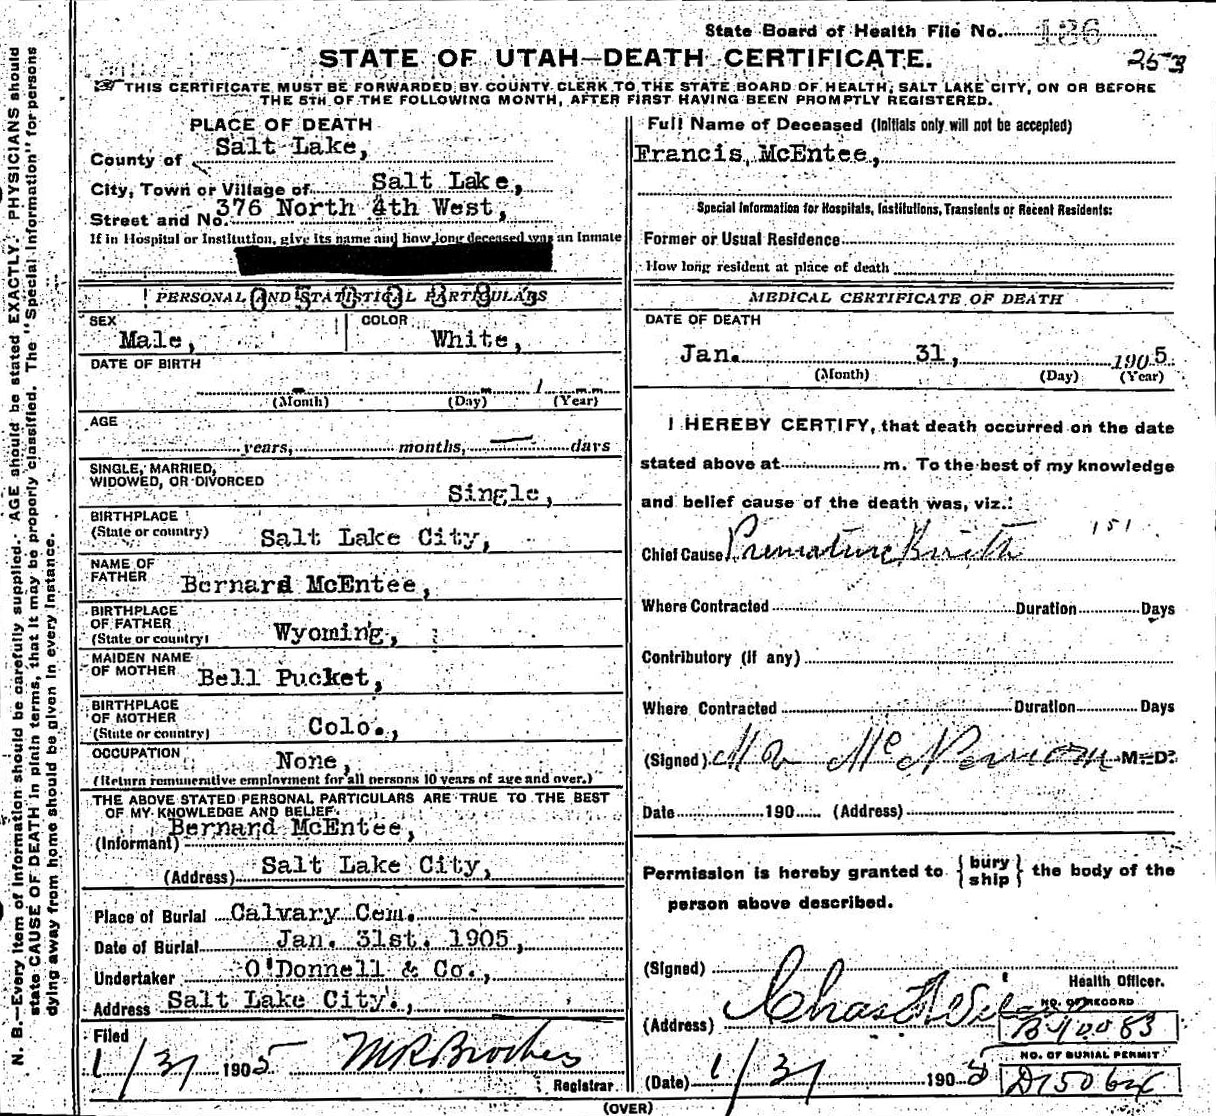 State Board of Health File No. 186
253
STATE OF UTAH—DEATH CERTIFICATE.
THIS CERTIFICATE MUST BE FORWARDED BY COUNTY CLERK TO THE STATE BOARD OF HEALTH, SALT LAKE CITY, ON OR BEFORE
THE 5TH OF THE FOLLOWING MONTH, AFTER FIRST HAVING BEEN PROMPTLY REGISTERED.
PLACE OF DEATH
County of Salt Lake,
City, Town or Village of Salt Lake,
Street and No. 376 North 4th West,
If in Hospital or Institution, give its name and how long deceased was an Inmate
PERSONAL AND STATISTICAL PARTICULARS
SEX Male, COLOR White,
DATE OF BIRTH
(Month) (Day) (Year)
AGE
years, months, days
SINGLE, MARRIED,
WIDOWED, OR DIVORCED Single,
BIRTHPLACE
(State or country) Salt Lake City,
NAME OF
FATHER Bernard McEntee,
BIRTHPLACE
OF FATHER
(State or country) Wyoming,
MAIDEN NAME
OF MOTHER Bell Pucket,
BIRTHPLACE
OF MOTHER
(State or country) Colo.,
OCCUPATION None,
(Return remunerative employment for all persons 10 years of age and over.)
THE ABOVE STATED PERSONAL PARTICULARS ARE TRUE TO THE BEST
OF MY KNOWLEDGE AND BELIEF.
(Informant) Bernard McEntee,
(Address) Salt Lake City,
Place of Burial Calvary Cem.
Date of Burial Jan. 31st. 1905,
Undertaker O'Donnell & Co.,
Address Salt Lake City.,
Filed
1/31 1905
Registrar
Full Name of Deceased (Initials only will not be accepted)
Francis, McEntee,
Special Information for Hospitals, Institutions, Transients or Recent Residents:
Former or Usual Residence
How long resident at place of death
MEDICAL CERTIFICATE OF DEATH
DATE OF DEATH
Jan. 31, 1905
(Month) (Day) (Year)
I HEREBY CERTIFY, that death occurred on the date
stated above at m. To the best of my knowledge
and belief cause of the death was, viz.:
Chief Cause Premature Birth 151
Where Contracted Duration Days
Contributory (if any)
Where Contracted Duration Days
(Signed) M.D.
Date 190 (Address)
Permission is hereby granted to { bury ship } the body of the
person above described.
(Signed)
Health Officer.
(Address) Chas
NO. OF RECORD
B40083
(Date) 1/31 1905
NO. OF BURIAL PERMIT
(OVER)
N. B.—Every item of information should be carefully supplied. AGE should be stated EXACTLY. PHYSICIANS should
state CAUSE OF DEATH in plain terms, that it may be properly classified. The "Special Information" for persons
dying away from home should be given in every instance.